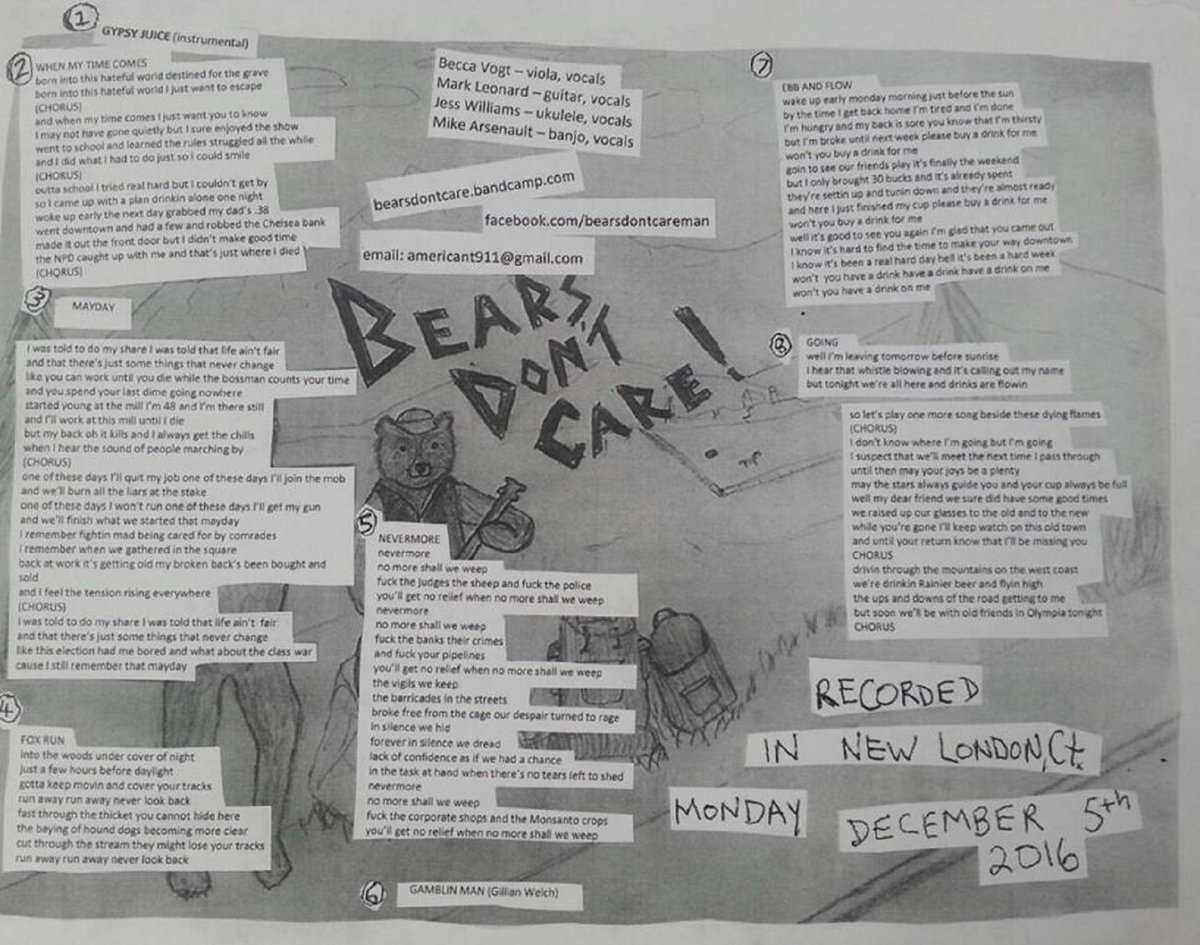 1
GYPSY JUICE (instrumental)
2
WHEN MY TIME COMES
born into this hateful world destined for the grave
born into this hateful world I just want to escape
(CHORUS)
and when my time comes I just want you to know
I may not have gone quietly but I sure enjoyed the show
went to school and learned the rules struggled all the while
and I did what I had to do just so I could smile
(CHORUS)
outta school I tried real hard but I couldn't get by
so I came up with a plan drinkin alone one night
woke up early the next day grabbed my dad's .38
went downtown and had a few and robbed the Chelsea bank
made it out the front door but I didn't make good time
the NPD caught up with me and that's just where I died
(CHORUS)
3
MAYDAY
I was told to do my share I was told that life ain't fair
and that there's just some things that never change
like you can work until you die while the bossman counts your time
and you spend your last dime going nowhere
started young at the mill I'm 48 and I'm there still
and I'll work at this mill until I die
but my back oh it kills and I always get the chills
when I hear the sound of people marching by
(CHORUS)
one of these days I'll quit my job one of these days I'll join the mob
and we'll burn all the liars at the stake
one of these days I won't run one of these days I'll get my gun
and we'll finish what we started that mayday
I remember fightin mad being cared for by comrades
I remember when we gathered in the square
back at work it's getting old my broken back's been bought and
sold
and I feel the tension rising everywhere
(CHORUS)
I was told to do my share I was told that life ain't fair
and that there's just some things that never change
like this election had me bored and what about the class war
cause I still remember that mayday
4
FOX RUN
into the woods under cover of night
just a few hours before daylight
gotta keep movin and cover your tracks
run away run away never look back
fast through the thicket you cannot hide here
the baying of hound dogs becoming more clear
cut through the stream they might lose your tracks
run away run away never look back
Becca Vogt – viola, vocals
Mark Leonard – guitar, vocals
Jess Williams – ukulele, vocals
Mike Arsenault – banjo, vocals
bearsdontcare.bandcamp.com
facebook.com/bearsdontcareman
email: americant911@gmail.com
BEARS
DON'T
CARE!
5
NEVERMORE
nevermore
no more shall we weep
fuck the judges the sheep and fuck the police
you'll get no relief when no more shall we weep
nevermore
no more shall we weep
fuck the banks their crimes
and fuck your pipelines
you'll get no relief when no more shall we weep
the vigils we keep
the barricades in the streets
broke free from the cage our despair turned to rage
in silence we hid
forever in silence we dread
lack of confidence as if we had a chance
in the task at hand when there's no tears left to shed
nevermore
no more shall we weep
fuck the corporate shops and the Monsanto crops
you'll get no relief when no more shall we weep
6
GAMBLIN MAN (Gillian Welch)
7
EBB AND FLOW
wake up early monday morning just before the sun
by the time I get back home I'm tired and I'm done
I'm hungry and my back is sore you know that I'm thirsty
but I'm broke until next week please buy a drink for me
won't you buy a drink for me
goin to see our friends play it's finally the weekend
but I only brought 30 bucks and it's already spent
they're settin up and tunin down and they're almost ready
and here I just finished my cup please buy a drink for me
won't you buy a drink for me
well it's good to see you again I'm glad that you came out
I know it's hard to find the time to make your way downtown
I know it's been a real hard day hell it's been a hard week
won't you have a drink have a drink have a drink on me
won't you have a drink on me
8
GOING
well I'm leaving tomorrow before sunrise
I hear that whistle blowing and it's calling out my name
but tonight we're all here and drinks are flowin
so let's play one more song beside these dying flames
(CHORUS)
I don't know where I'm going but I'm going
I suspect that we'll meet the next time I pass through
until then may your joys be a plenty
may the stars always guide you and your cup always be full
well my dear friend we sure did have some good times
we raised up our glasses to the old and to the new
while you're gone I'll keep watch on this old town
and until your return know that I'll be missing you
CHORUS
drivin through the mountains on the west coast
we're drinkin Rainier beer and flyin high
the ups and downs of the road getting to me
but soon we'll be with old friends in Olympia tonight
CHORUS
RECORDED
IN NEW LONDON, Ct.
MONDAY DECEMBER 5th
2016